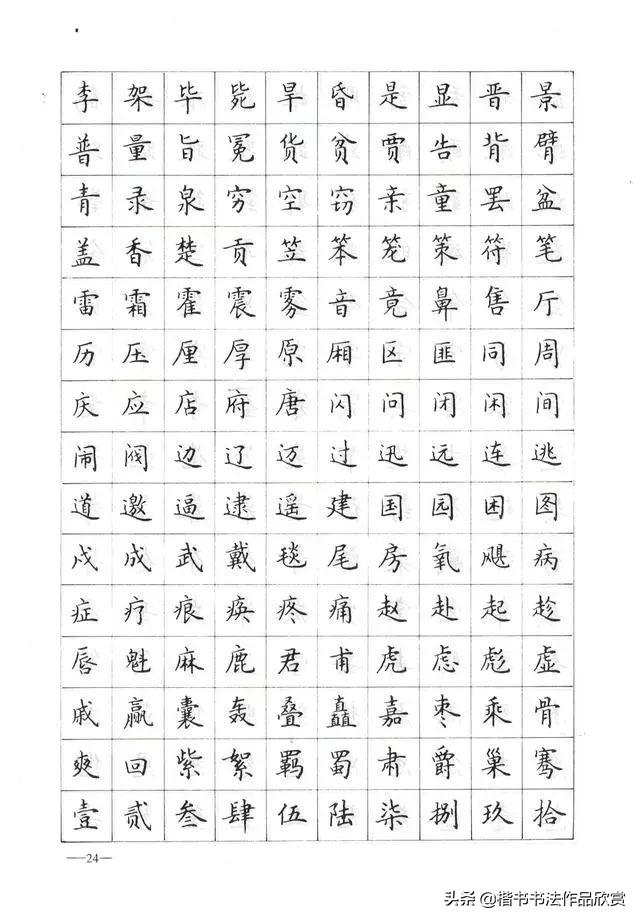 李架毕毙旱昏是显晋景
普量旨冕货贫贾告背臂
青录泉穷空窃亲童罢盆
盖香楚贡笠笨笼策符笔
雷霜霍震雾音竟鼻售厅
历压厘厚原厢区匪同周
庆应店府唐闪问闭闲间
闹阀边辽迈过迅远连逃
道邀逼逮遥建国园困图
戍成武戴毯尾房氧飓病
症疗痕痪疼痛赵赴起趁
唇魁麻鹿君甫虎虑彪虚
戚赢囊轰叠矗嘉枣乘骨
爽回紫絮羁蜀肃爵巢骞
壹贰叁肆伍陆柒捌玖拾
—24—
头条@楷书书法作品欣赏